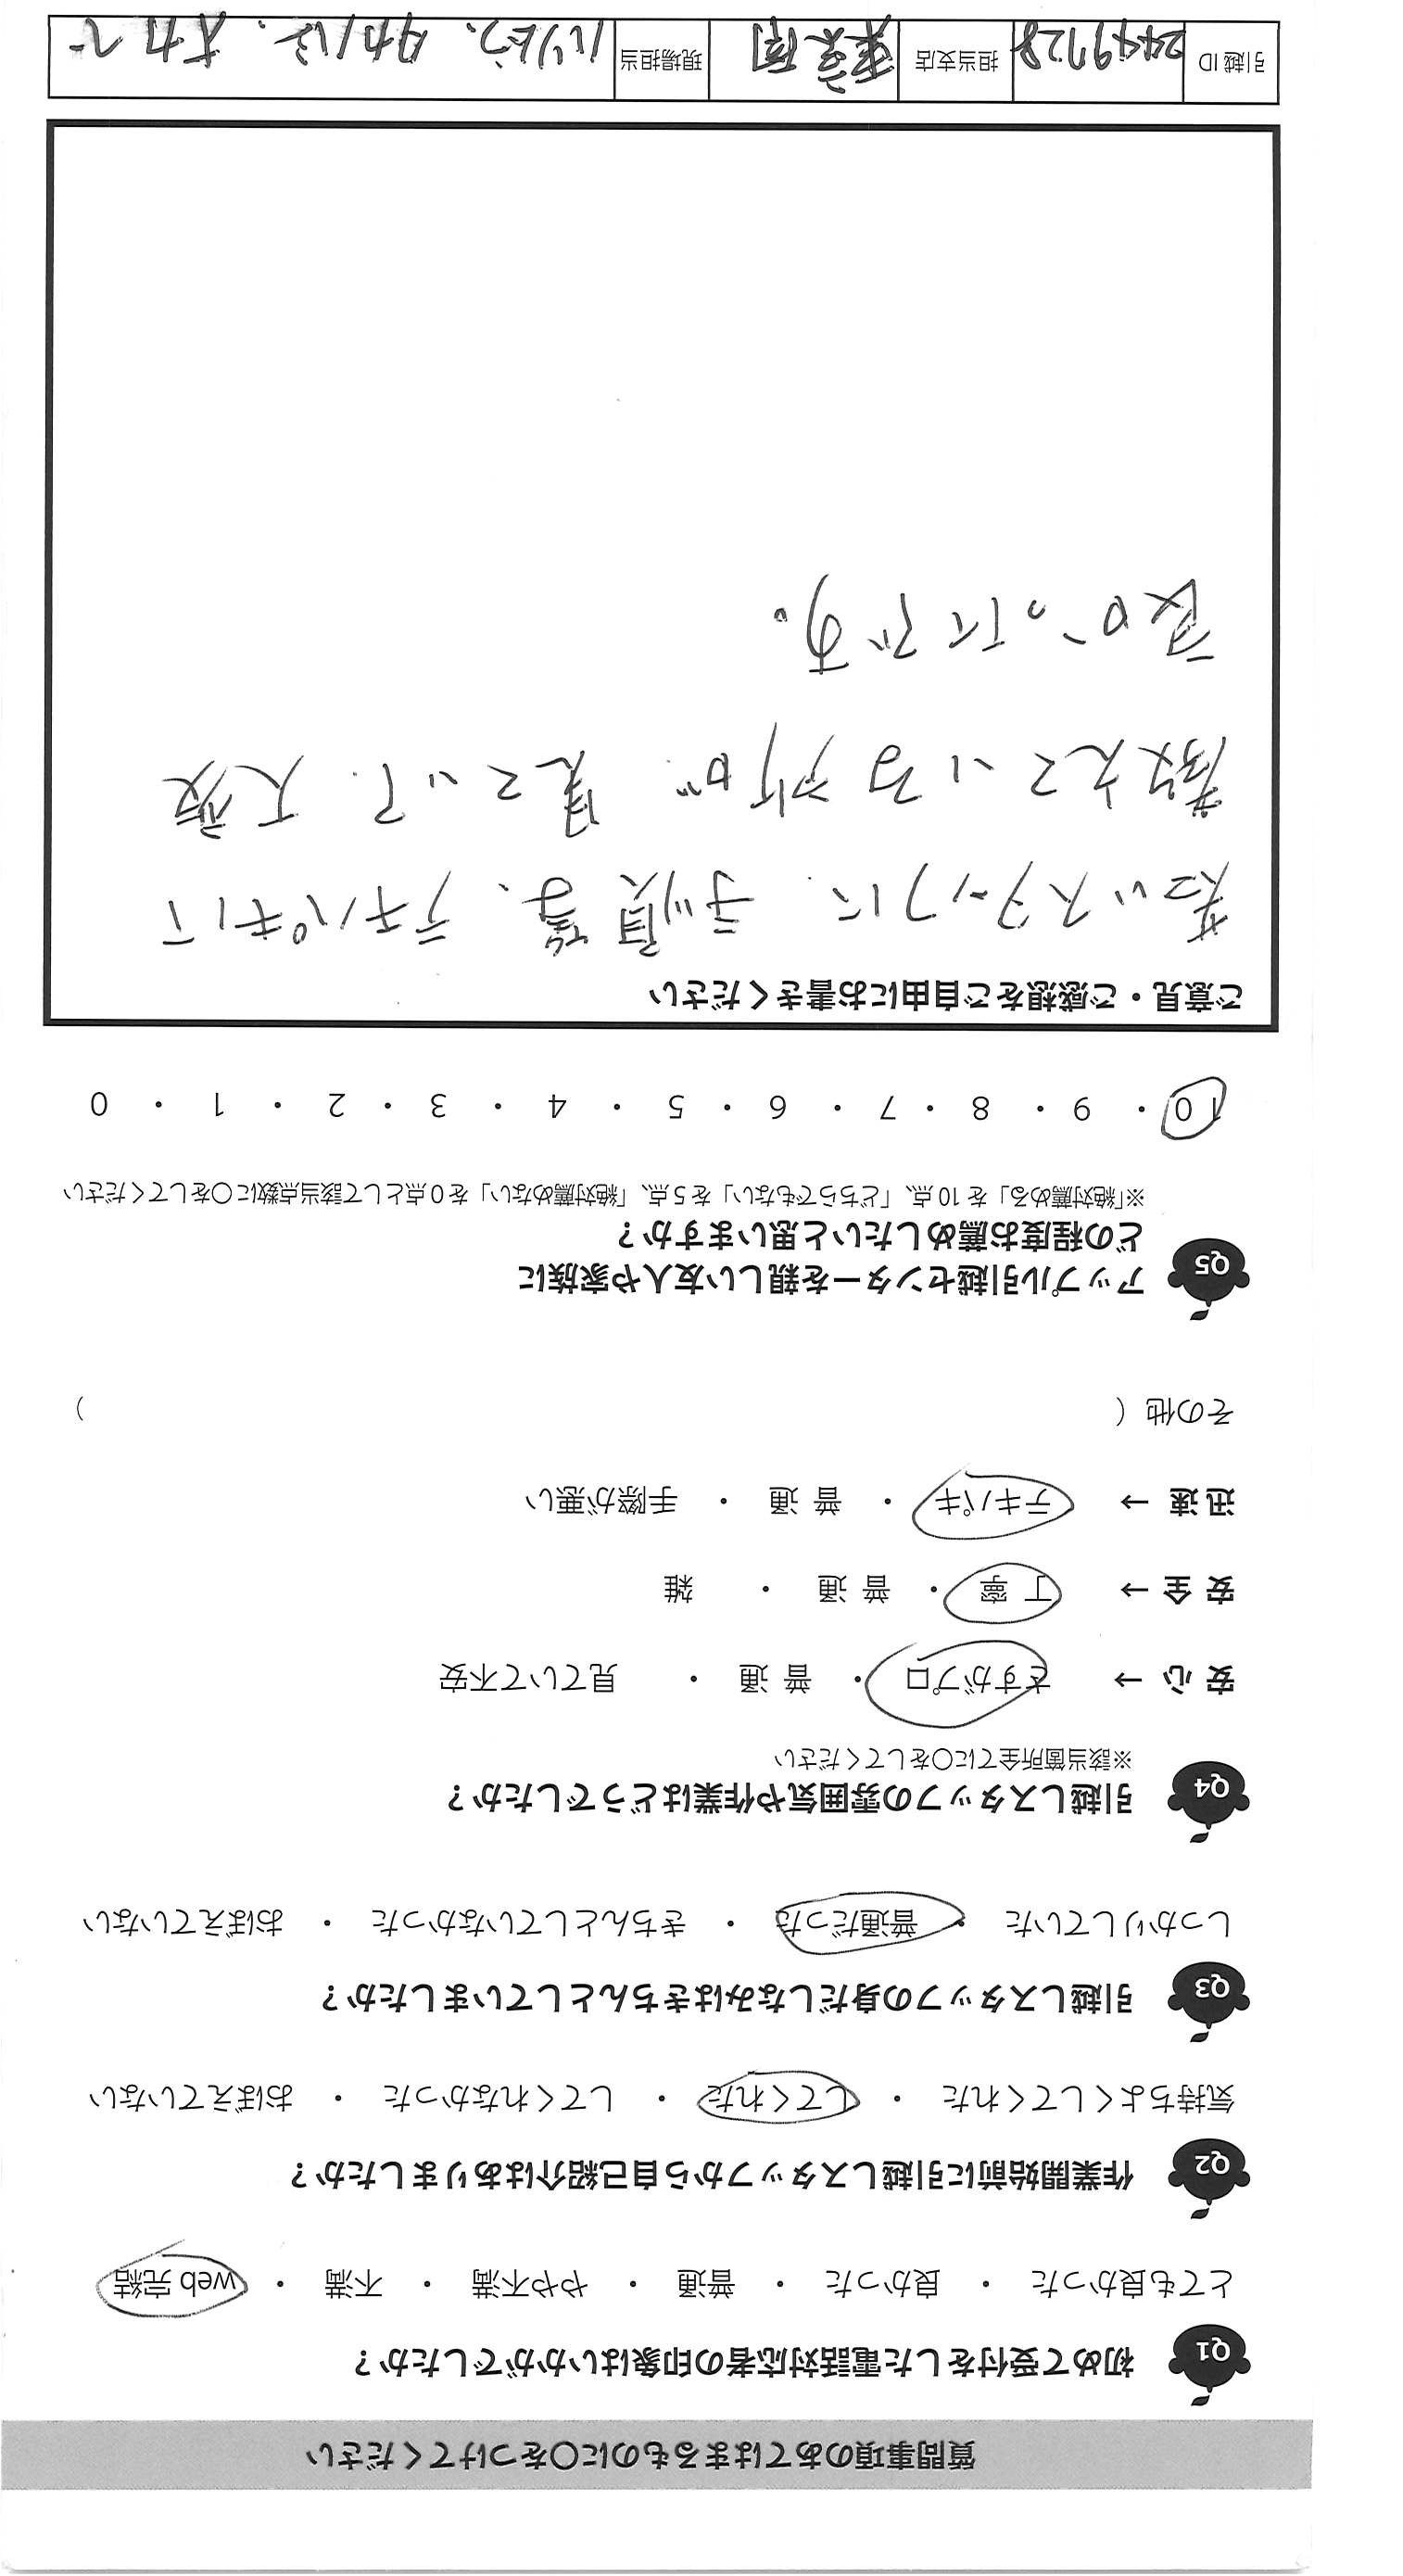 質問事項のあてはまるものに〇をつけてください
Q1 初めて受付をした電話対応者の印象はいかがでしたか？
とても良かった ・ 良かった ・ 普通 ・ やや不満 ・ 不満 ・ web 完結
Q2 作業開始前に引越しスタッフから自己紹介はありましたか？
気持ちよくしてくれた ・ してくれた ・ してくれなかった ・ おぼえていない
Q3 引越しスタッフの身だしなみはきちんとしていましたか？
しっかりしていた ・ 普通だった ・ きちんとしていなかった ・ おぼえていない
Q4 引越しスタッフの雰囲気や作業はどうでしたか？
※該当箇所全てに〇をしてください
安 心 → さすがプロ ・ 普 通 ・ 見ていて不安
安 全 → 丁 寧 ・ 普 通 ・ 雑
迅 速 → テキパキ ・ 普 通 ・ 手際が悪い
その他（ ）
Q5 アップル引越センターを親しい友人や家族に
どの程度お薦めしたいと思いますか？
※「絶対薦める」を 10 点、「どちらでもない」を 5 点、「絶対薦めない」を 0 点として該当点数に〇をしてください
10 ・ 9 ・ 8 ・ 7 ・ 6 ・ 5 ・ 4 ・ 3 ・ 2 ・ 1 ・ 0
ご意見・ご感想をご自由にお書きください
若いスタッフに、手順等、テキパキして
教えている所が 見ていて、大変
良かったです。
引越 ID 2449728 担当支店 東京南 現場担当